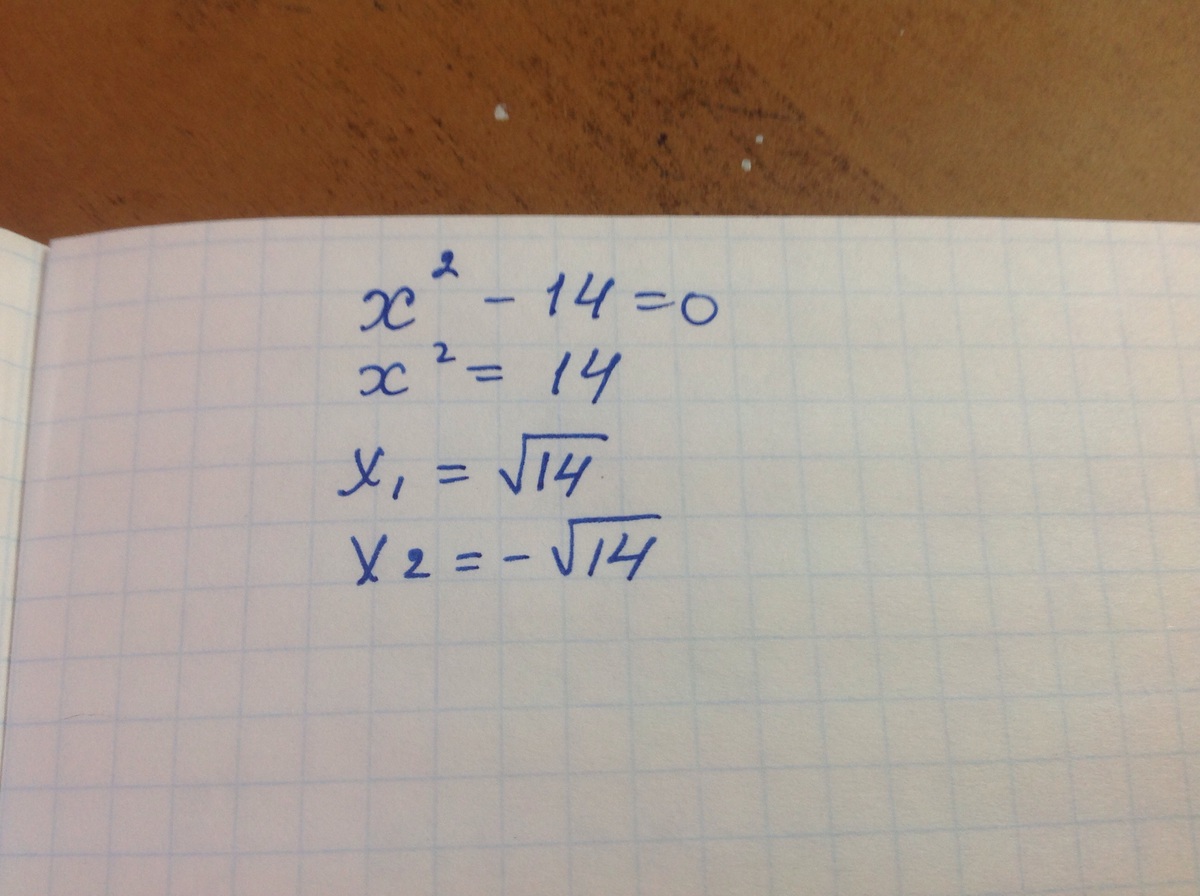 x² - 14 = 0
x² = 14
x₁ = √14
x₂ = -√14